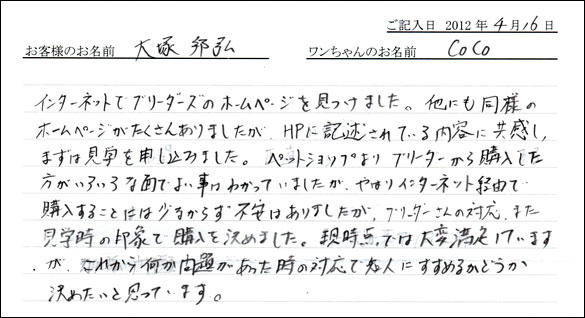 ご記入日 2012年4月16日
お客様のお名前 大塚邦弘 ワンちゃんのお名前 CoCo
インターネットでブリーダーズのホームページを見つけました。他にも同様の
ホームページがたくさんありましたが、HPに記述されている内容に共感し、
まずは見学を申し込みました。ペットショップより ブリーダーから購入した
方がいろいろな面でよい事はわかっていましたが、やはりインターネット経由で
購入することには少なからず不安はありましたが、ブリーダーさんの対応、また
見学時の印象で購入を決めました。現時点では大変満足しています
が、これから何か問題があった時の対応で友人にすすめるかどうか
決めたいと思っています。